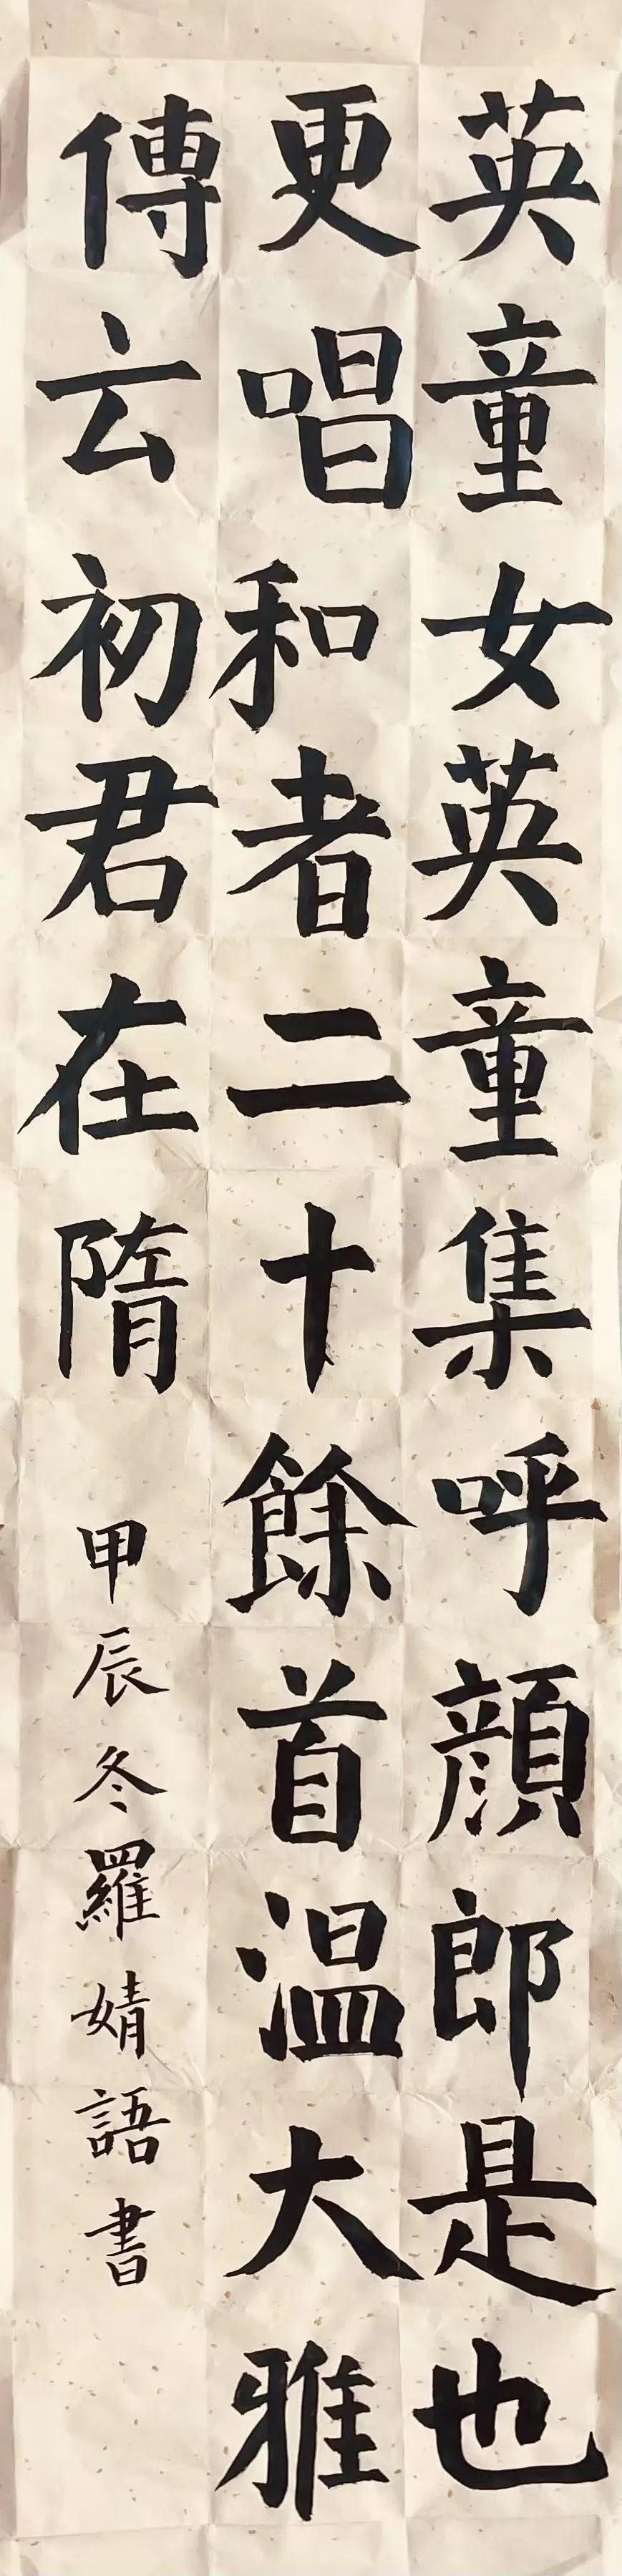 英童女英童集呼顔郎是也
更唱和者二十餘首温大雅
傳云初君在隋
甲辰冬羅婧語書